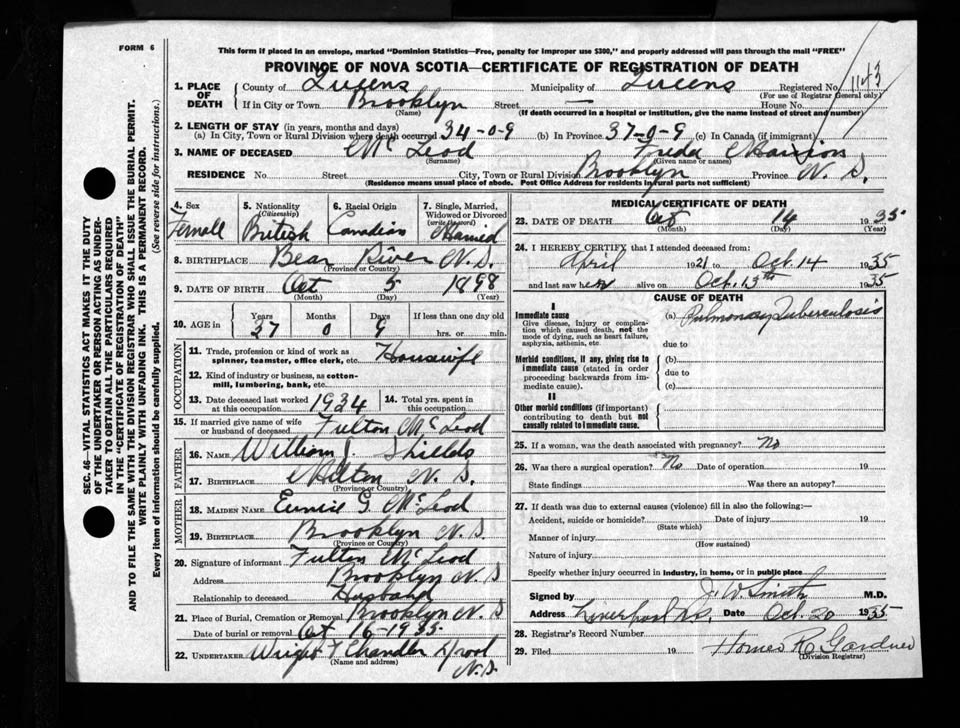 FORM 6
This form if placed in an envelope, marked "Dominion Statistics—Free, penalty for improper use $300," and properly addressed will pass through the mail "FREE"
PROVINCE OF NOVA SCOTIA—CERTIFICATE OF REGISTRATION OF DEATH
1143
1. PLACE OF DEATH County of Queens Municipality of Queens Registered No.
(For use of Registrar General only)
If in City or Town Brooklyn Street — House No.
(Name) (If death occurred in a hospital or institution, give the name instead of street and number)
2. LENGTH OF STAY (in years, months and days)
(a) In City, Town or Rural Division where death occurred 34-0-9 (b) In Province 37-0-9 (c) In Canada (if immigrant)
3. NAME OF DECEASED McLeod Freda
(Surname) (Given name or names)
RESIDENCE No. Street City, Town or Rural Division Brooklyn Province N. S.
(Residence means usual place of abode. Post Office Address for residents in rural parts not sufficient)
4. Sex Femall
5. Nationality (Citizenship) British
6. Racial Origin Canadian
7. Single, Married, Widowed or Divorced (write the word) Married
8. BIRTHPLACE Bear River N. S.
(Province or Country)
9. DATE OF BIRTH Oct 5 1898
(Month) (Day) (Year)
10. AGE in Years Months Days If less than one day old
37 0 9 hrs. or min.
OCCUPATION
11. Trade, profession or kind of work as spinner, teamster, office clerk, etc. Housewife
12. Kind of industry or business, as cotton-mill, lumbering, bank, etc.
13. Date deceased last worked at this occupation 1934 14. Total yrs. spent in this occupation
15. If married give name of wife or husband of deceased Fulton McLeod
FATHER
16. NAME William J. Shields
17. BIRTHPLACE Milton N. S.
(Province or Country)
MOTHER
18. MAIDEN NAME Eunice G. McLeod
19. BIRTHPLACE Brooklyn N. S.
(Province or Country)
20. Signature of informant Fulton McLeod
Address Brooklyn N S
Relationship to deceased Husband
21. Place of Burial, Cremation or Removal Brooklyn N. S
Date of burial or removal Oct 16-1935
22. UNDERTAKER Wright F Chandler Lpool
(Name and address) N. S.
MEDICAL CERTIFICATE OF DEATH
23. DATE OF DEATH Oct 14 1935
(Month) (Day) (Year)
24. I HEREBY CERTIFY that I attended deceased from:
April 1921 to Oct. 14 1935
and last saw her alive on Oct. 13th 1935
CAUSE OF DEATH
I
Immediate cause (a) Pulmonary Tuberculosis
Give disease, injury or complication which caused death, not the mode of dying, such as heart failure, asphyxia, asthenia, etc.
due to
Morbid conditions, if any, giving rise to immediate cause (stated in order proceeding backwards from immediate cause).
(b)
due to
(c)
II
Other morbid conditions (if important) contributing to death but not causally related to immediate cause.
25. If a woman, was the death associated with pregnancy? No
26. Was there a surgical operation? No Date of operation 19
State findings Was there an autopsy?
27. If death was due to external causes (violence) fill in also the following:—
Accident, suicide or homicide? Date of injury 19
(State which)
Manner of injury
(How sustained)
Nature of injury
Specify whether injury occurred in industry, in home, or in public place
Signed by J. W Smith M.D.
Address Liverpool N.S. Date Oct. 20 1935
28. Registrar's Record Number
29. Filed 19 Homer R. Gardner
(Division Registrar)
SEC. 46—VITAL STATISTICS ACT MAKES IT THE DUTY
OF THE UNDERTAKER OR PERSON ACTING AS UNDER-
TAKER TO OBTAIN ALL THE PARTICULARS REQUIRED
IN THE "CERTIFICATE OF REGISTRATION OF DEATH"
AND TO FILE THE SAME WITH THE DIVISION REGISTRAR WHO SHALL ISSUE THE BURIAL PERMIT.
WRITE PLAINLY WITH UNFADING INK. THIS IS A PERMANENT RECORD.
Every item of information should be carefully supplied. (See reverse side for instructions.)